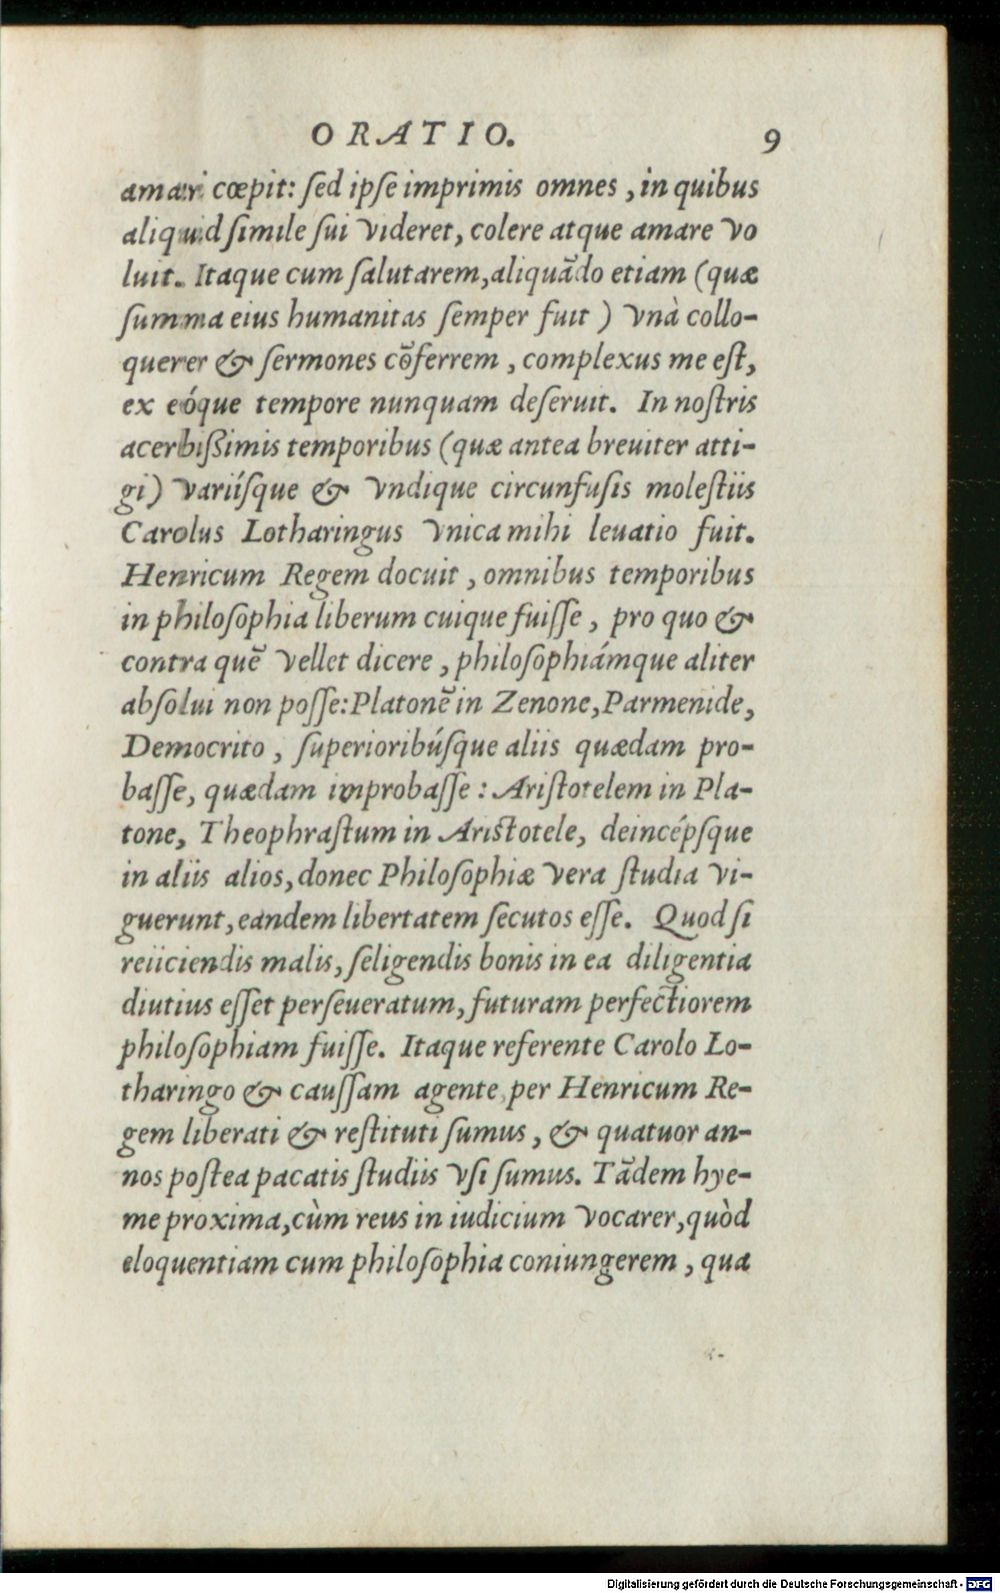 ORATIO. 9
amari cœpit: ſed ipſe imprimis omnes, in quibus
aliquid ſimile ſui videret, colere atque amare vo
luit. Itaque cum ſalutarem, aliquãdo etiam (quæ
ſumma eius humanitas ſemper fuit) vnà collo-
querer & ſermones cõferrem, complexus me eſt,
ex eóque tempore nunquam deſeruit. In noſtris
acerbiſſimis temporibus (quæ antea breuiter atti-
gi) variíſque & vndique circunfuſis moleſtiis
Carolus Lotharingus vnica mihi leuatio fuit.
Henricum Regem docuit, omnibus temporibus
in philoſophia liberum cuique fuiſſe, pro quo &
contra quẽ vellet dicere, philoſophiámque aliter
abſolui non poſſe: Platonẽ in Zenone, Parmenide,
Democrito, ſuperioribúſque aliis quædam pro-
baſſe, quædam improbaſſe: Ariſtotelem in Pla-
tone, Theophraſtum in Ariſtotele, deincépſque
in aliis alios, donec Philoſophiæ vera ſtudia vi-
guerunt, eandem libertatem ſecutos eſſe. Quod ſi
reiiciendis malis, ſeligendis bonis in ea diligentia
diutius eſſet perſeueratum, futuram perfectiorem
philoſophiam fuiſſe. Itaque referente Carolo Lo-
tharingo & cauſſam agente, per Henricum Re-
gem liberati & reſtituti ſumus, & quatuor an-
nos poſtea pacatis ſtudiis vſi ſumus. Tãdem hye-
me proxima, cùm reus in iudicium vocarer, quòd
eloquentiam cum philoſophia coniungerem, qua
Digitalisierung gefördert durch die Deutsche Forschungsgemeinschaft - DFG